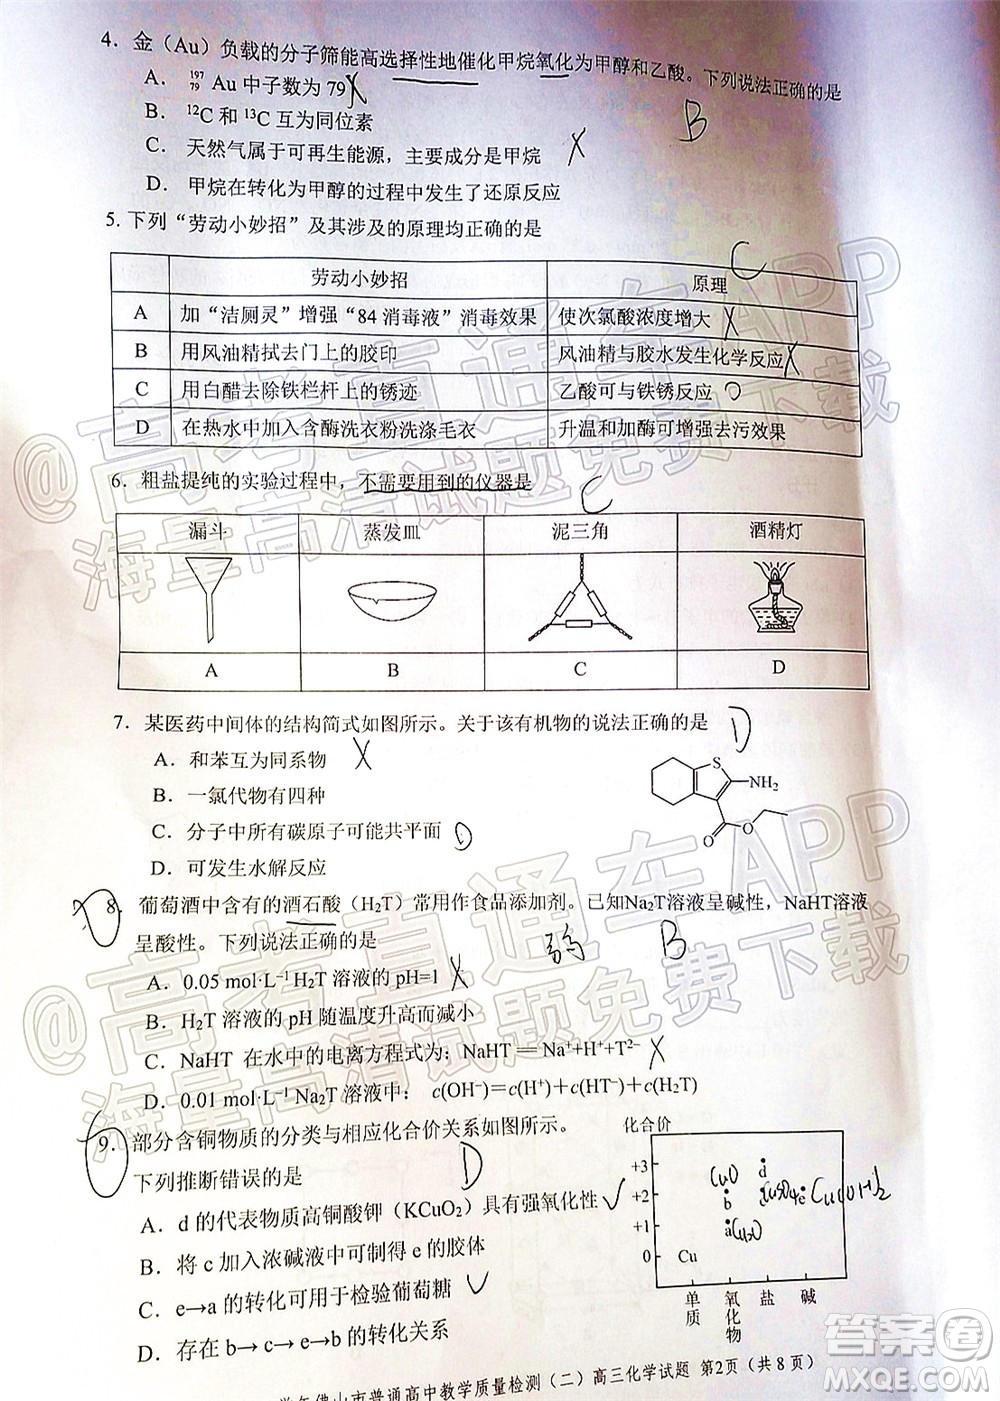 4. 金（Au）负载的分子筛能高选择性地催化甲烷氧化为甲醇和乙酸。下列说法正确的是
A. ¹⁹⁷₇₉Au 中子数为 79 X
B. ¹²C 和 ¹³C 互为同位素 B
C. 天然气属于可再生能源，主要成分是甲烷 X
D. 甲烷在转化为甲醇的过程中发生了还原反应
5. 下列“劳动小妙招”及其涉及的原理均正确的是 C
劳动小妙招 原理
A 加“洁厕灵”增强“84 消毒液”消毒效果 使次氯酸浓度增大 X
B 用风油精拭去门上的胶印 风油精与胶水发生化学反应 X
C 用白醋去除铁栏杆上的锈迹 乙酸可与铁锈反应
D 在热水中加入含酶洗衣粉洗涤毛衣 升温和加酶可增强去污效果
6. 粗盐提纯的实验过程中，不需要用到的仪器是 C
漏斗 蒸发皿 泥三角 酒精灯
A B C D
7. 某医药中间体的结构简式如图所示。关于该有机物的说法正确的是 D
A. 和苯互为同系物 X
B. 一氯代物有四种
C. 分子中所有碳原子可能共平面
D. 可发生水解反应
S
NH₂
O
O
8. 葡萄酒中含有的酒石酸（H₂T）常用作食品添加剂。已知Na₂T溶液呈碱性，NaHT溶液
呈酸性。下列说法正确的是 弱 B
A. 0.05 mol·L⁻¹ H₂T 溶液的 pH=1 X
B. H₂T 溶液的 pH 随温度升高而减小
C. NaHT 在水中的电离方程式为：NaHT = Na⁺+H⁺+T²⁻ X
D. 0.01 mol·L⁻¹ Na₂T 溶液中： c(OH⁻)=c(H⁺)+c(HT⁻)+c(H₂T)
9. 部分含铜物质的分类与相应化合价关系如图所示。
下列推断错误的是 D
A. d 的代表物质高铜酸钾（KCuO₂）具有强氧化性 √
B. 将 c 加入浓碱液中可制得 e 的胶体
C. e→a 的转化可用于检验葡萄糖 √
D. 存在 b→c→e→b 的转化关系
化合价
+3
+2
+1
0
d
b
c
e
a
Cu
单质 氧化物 盐 碱
佛山市普通高中教学质量检测（二）高三化学试题 第2页（共 8 页）
@高考直通车APP
海量高清试题免费下载
@高考直通车APP
海量高清试题免费下载
答案圈
MXQE.COM